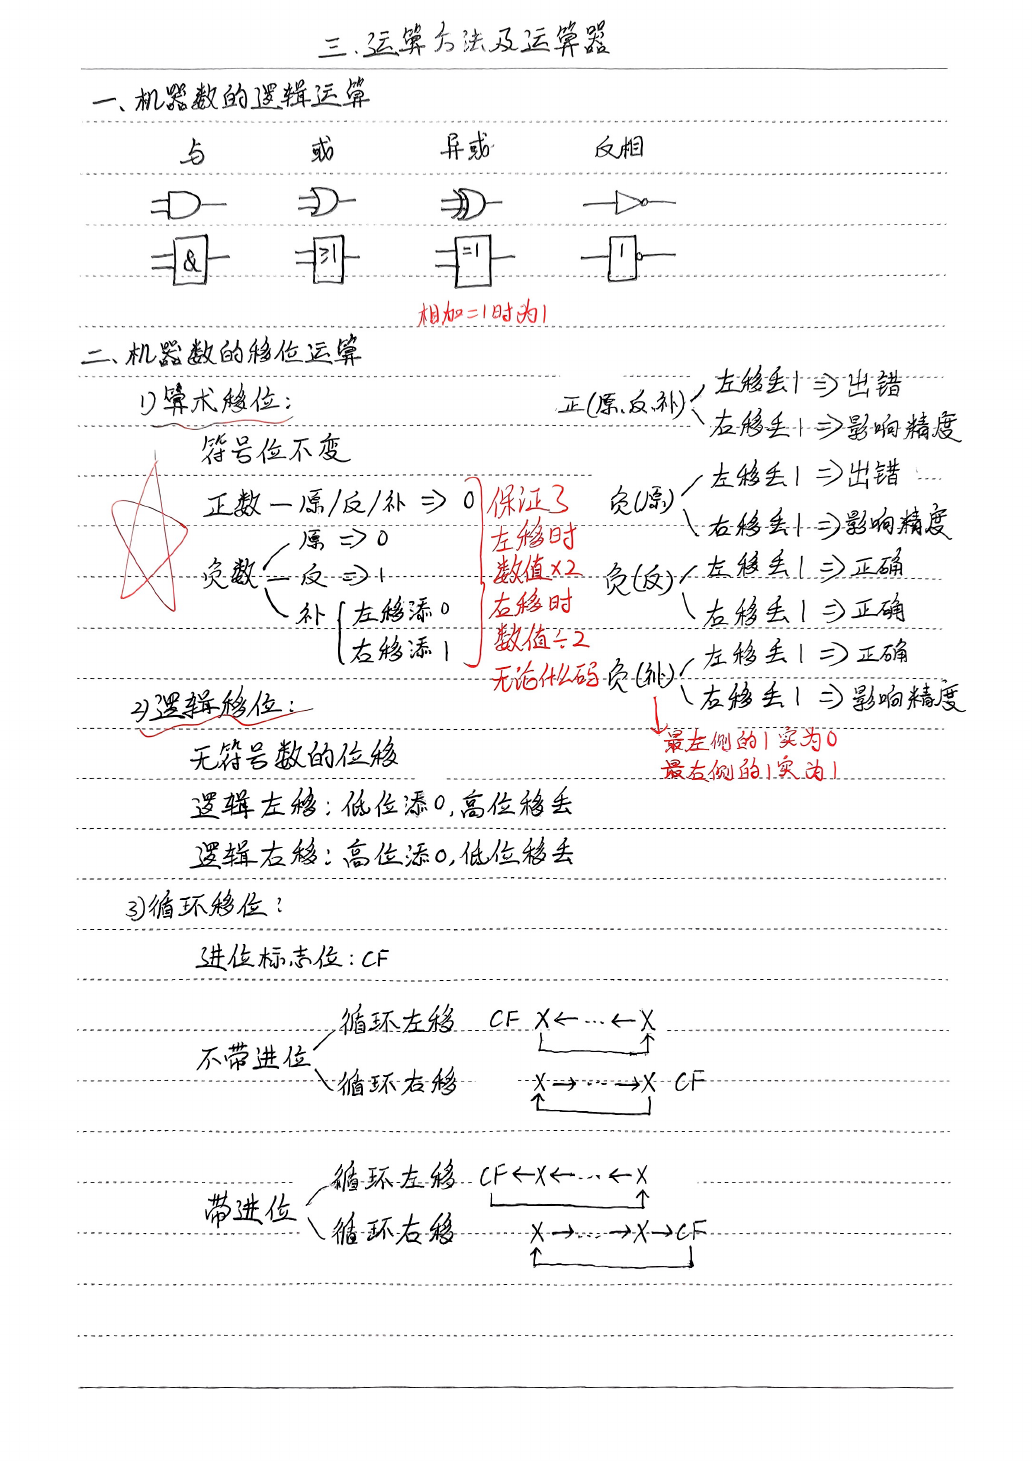 三.运算方法及运算器
一、机器数的逻辑运算
与 或 异或 反相
& ≥1 =1 1
相加=1时为1
二、机器数的移位运算
1)算术移位:
符号位不变
正数—原/反/补 => 0
负数 原 => 0
反 => 1
补 左移添0
右移添1
保证了
左移时
数值×2
右移时
数值÷2
无论什么码
正(原、反、补) 左移丢1 => 出错
右移丢1 => 影响精度
负(原) 左移丢1 => 出错
右移丢1 => 影响精度
负(反) 左移丢1 => 正确
右移丢1 => 正确
负(补) 左移丢1 => 正确
右移丢1 => 影响精度
最左侧的1实为0
最右侧的1实为1
2)逻辑移位:
无符号数的位移
逻辑左移:低位添0,高位移丢
逻辑右移:高位添0,低位移丢
3)循环移位:
进位标志位:CF
不带进位 循环左移 CF X←…←X
循环右移 X→…→X CF
带进位 循环左移 CF←X←…←X
循环右移 X→…→X→CF